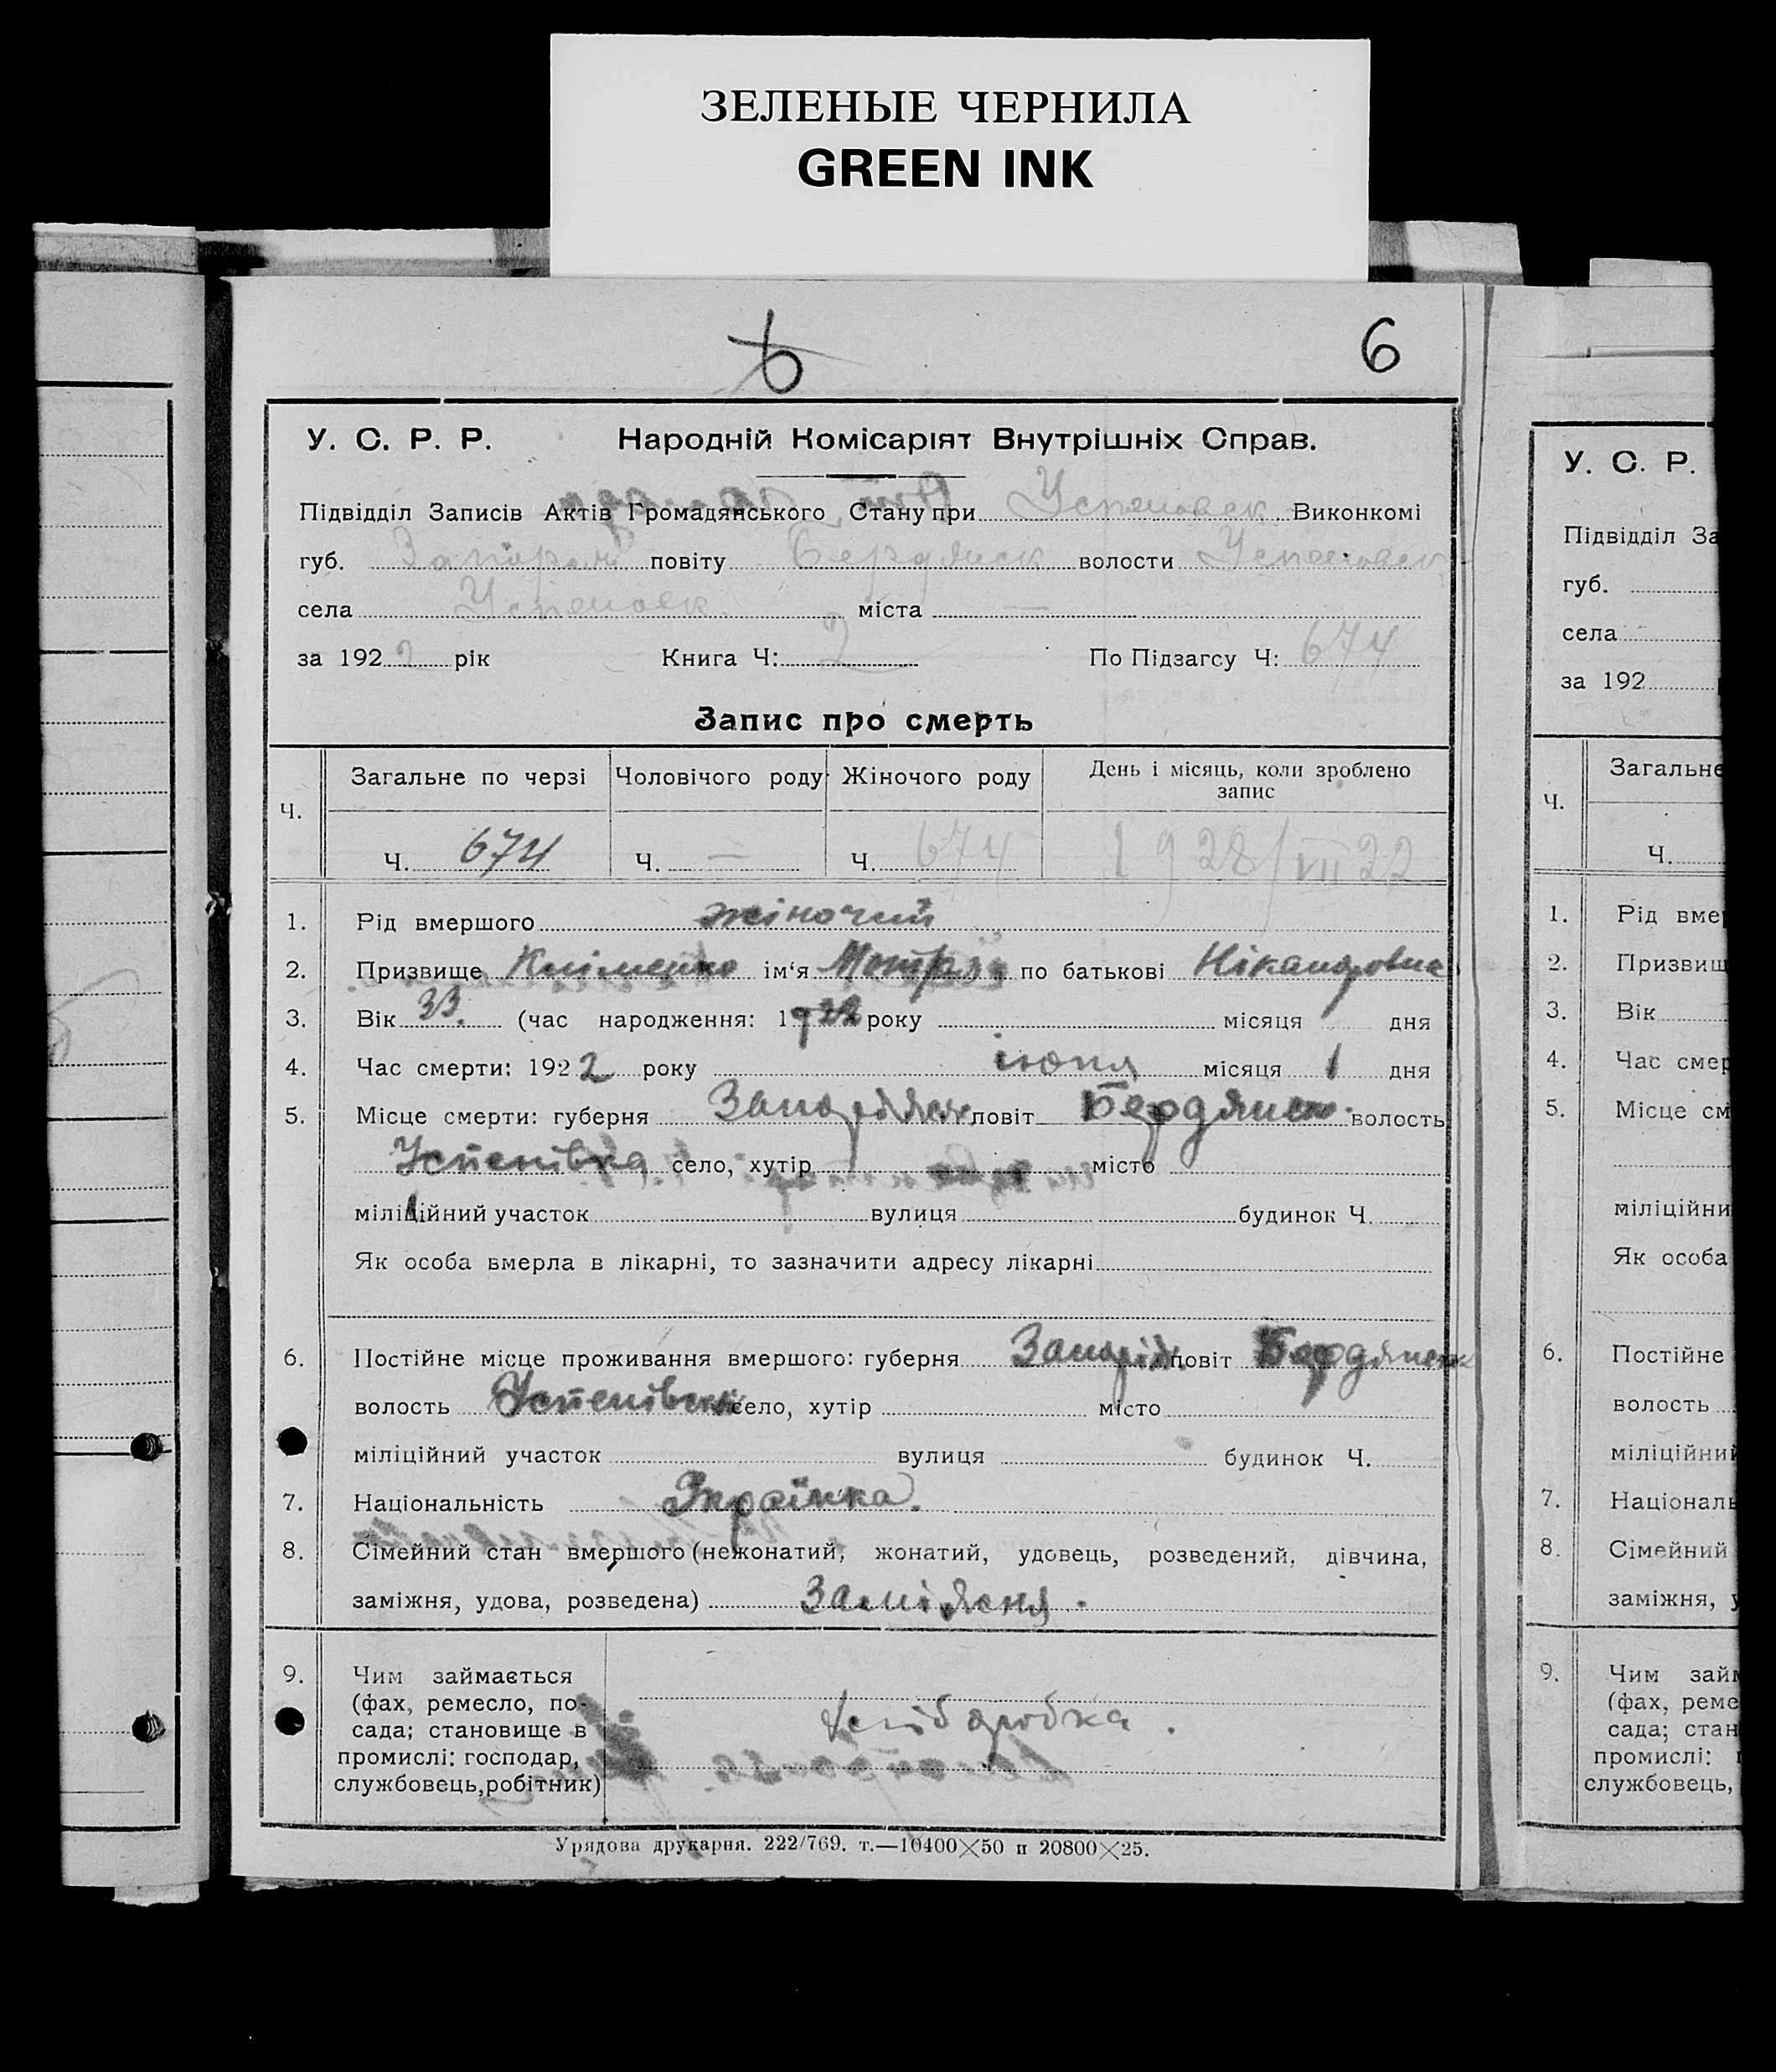 ЗЕЛЕНЫЕ ЧЕРНИЛА
GREEN INK
6 6
У. С. Р. Р. Народній Комісаріят Внутрішніх Справ.
Підвідділ Записів Актів Громадянського Стану при Успеновск Виконкомі
губ. повіту Бердянск волости Успеновск
села Успеновк. міста —
за 1922 рік Книга Ч: 2 По Підзагсу Ч: 674
Запис про смерть
Ч. Загальне по черзі Чоловічого роду Жіночого роду День і місяць, коли зроблено запис
Ч. 674 Ч. — Ч. 674 1928/VII 22
1. Рід вмершого жіночий
2. Призвище Кліменко ім‘я Мотря по батькові Нікандровна
3. Вік 33. (час народження: 1922 року місяця дня
4. Час смерти: 1922 року июня місяця 1 дня
5. Місце смерти: губерня Запоріжск повіт Бердянск. волость
Успенівка село, хутір місто
міліційний участок вулиця будинок Ч.
Як особа вмерла в лікарні, то зазначити адресу лікарні
6. Постійне місце проживання вмершого: губерня Запоріж повіт Бердянськ
волость Успенівськ село, хутір місто
міліційний участок вулиця будинок Ч.
7. Національність Українка.
8. Сімейний стан вмершого (нежонатий, жонатий, удовець, розведений, дівчина,
заміжня, удова, розведена) Заміжня.
9. Чим займається
(фах, ремесло, по-
сада; становище в
промислі: господар,
службовець, робітник)
Хліборобка.
Урядова друкарня. 222/769. т.—10400×50 п 20800×25.
У. С. Р.
Підвідділ За
губ.
села
за 192
Ч. Загальне
Ч.
1. Рід вме
2. Призвищ
3. Вік
4. Час смер
5. Місце см
міліційни
Як особа
6. Постійне
волость
міліційний
7. Національ
8. Сімейний
заміжня, у
9. Чим займ
(фах, реме
сада; стан
промислі:
службовець,